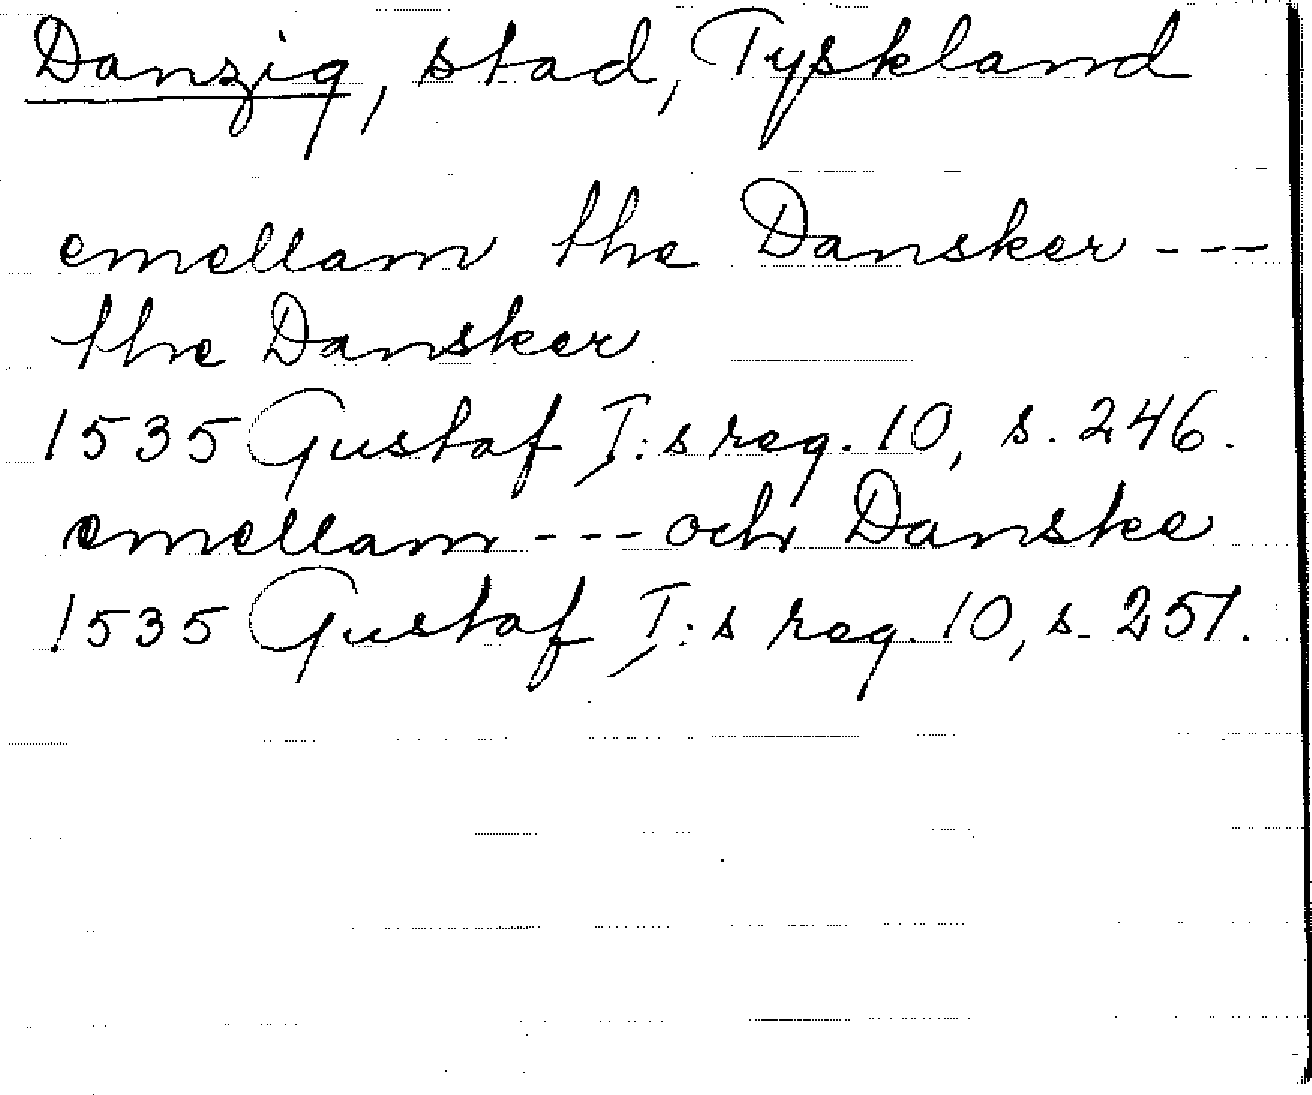 Danzig, stad, Tyskland
emellam the Dansker ---
the Dansker
1535 Gustaf I:s reg. 10, s. 246.
emellam --- och Danske
1535 Gustaf I:s reg. 10, s. 251.